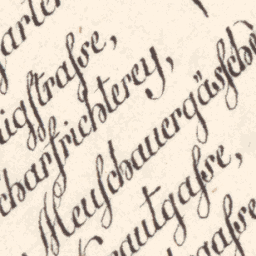 arten
igstraße,
charfrichterey,
Neuschauergäsche
Krautgasse,
gasse